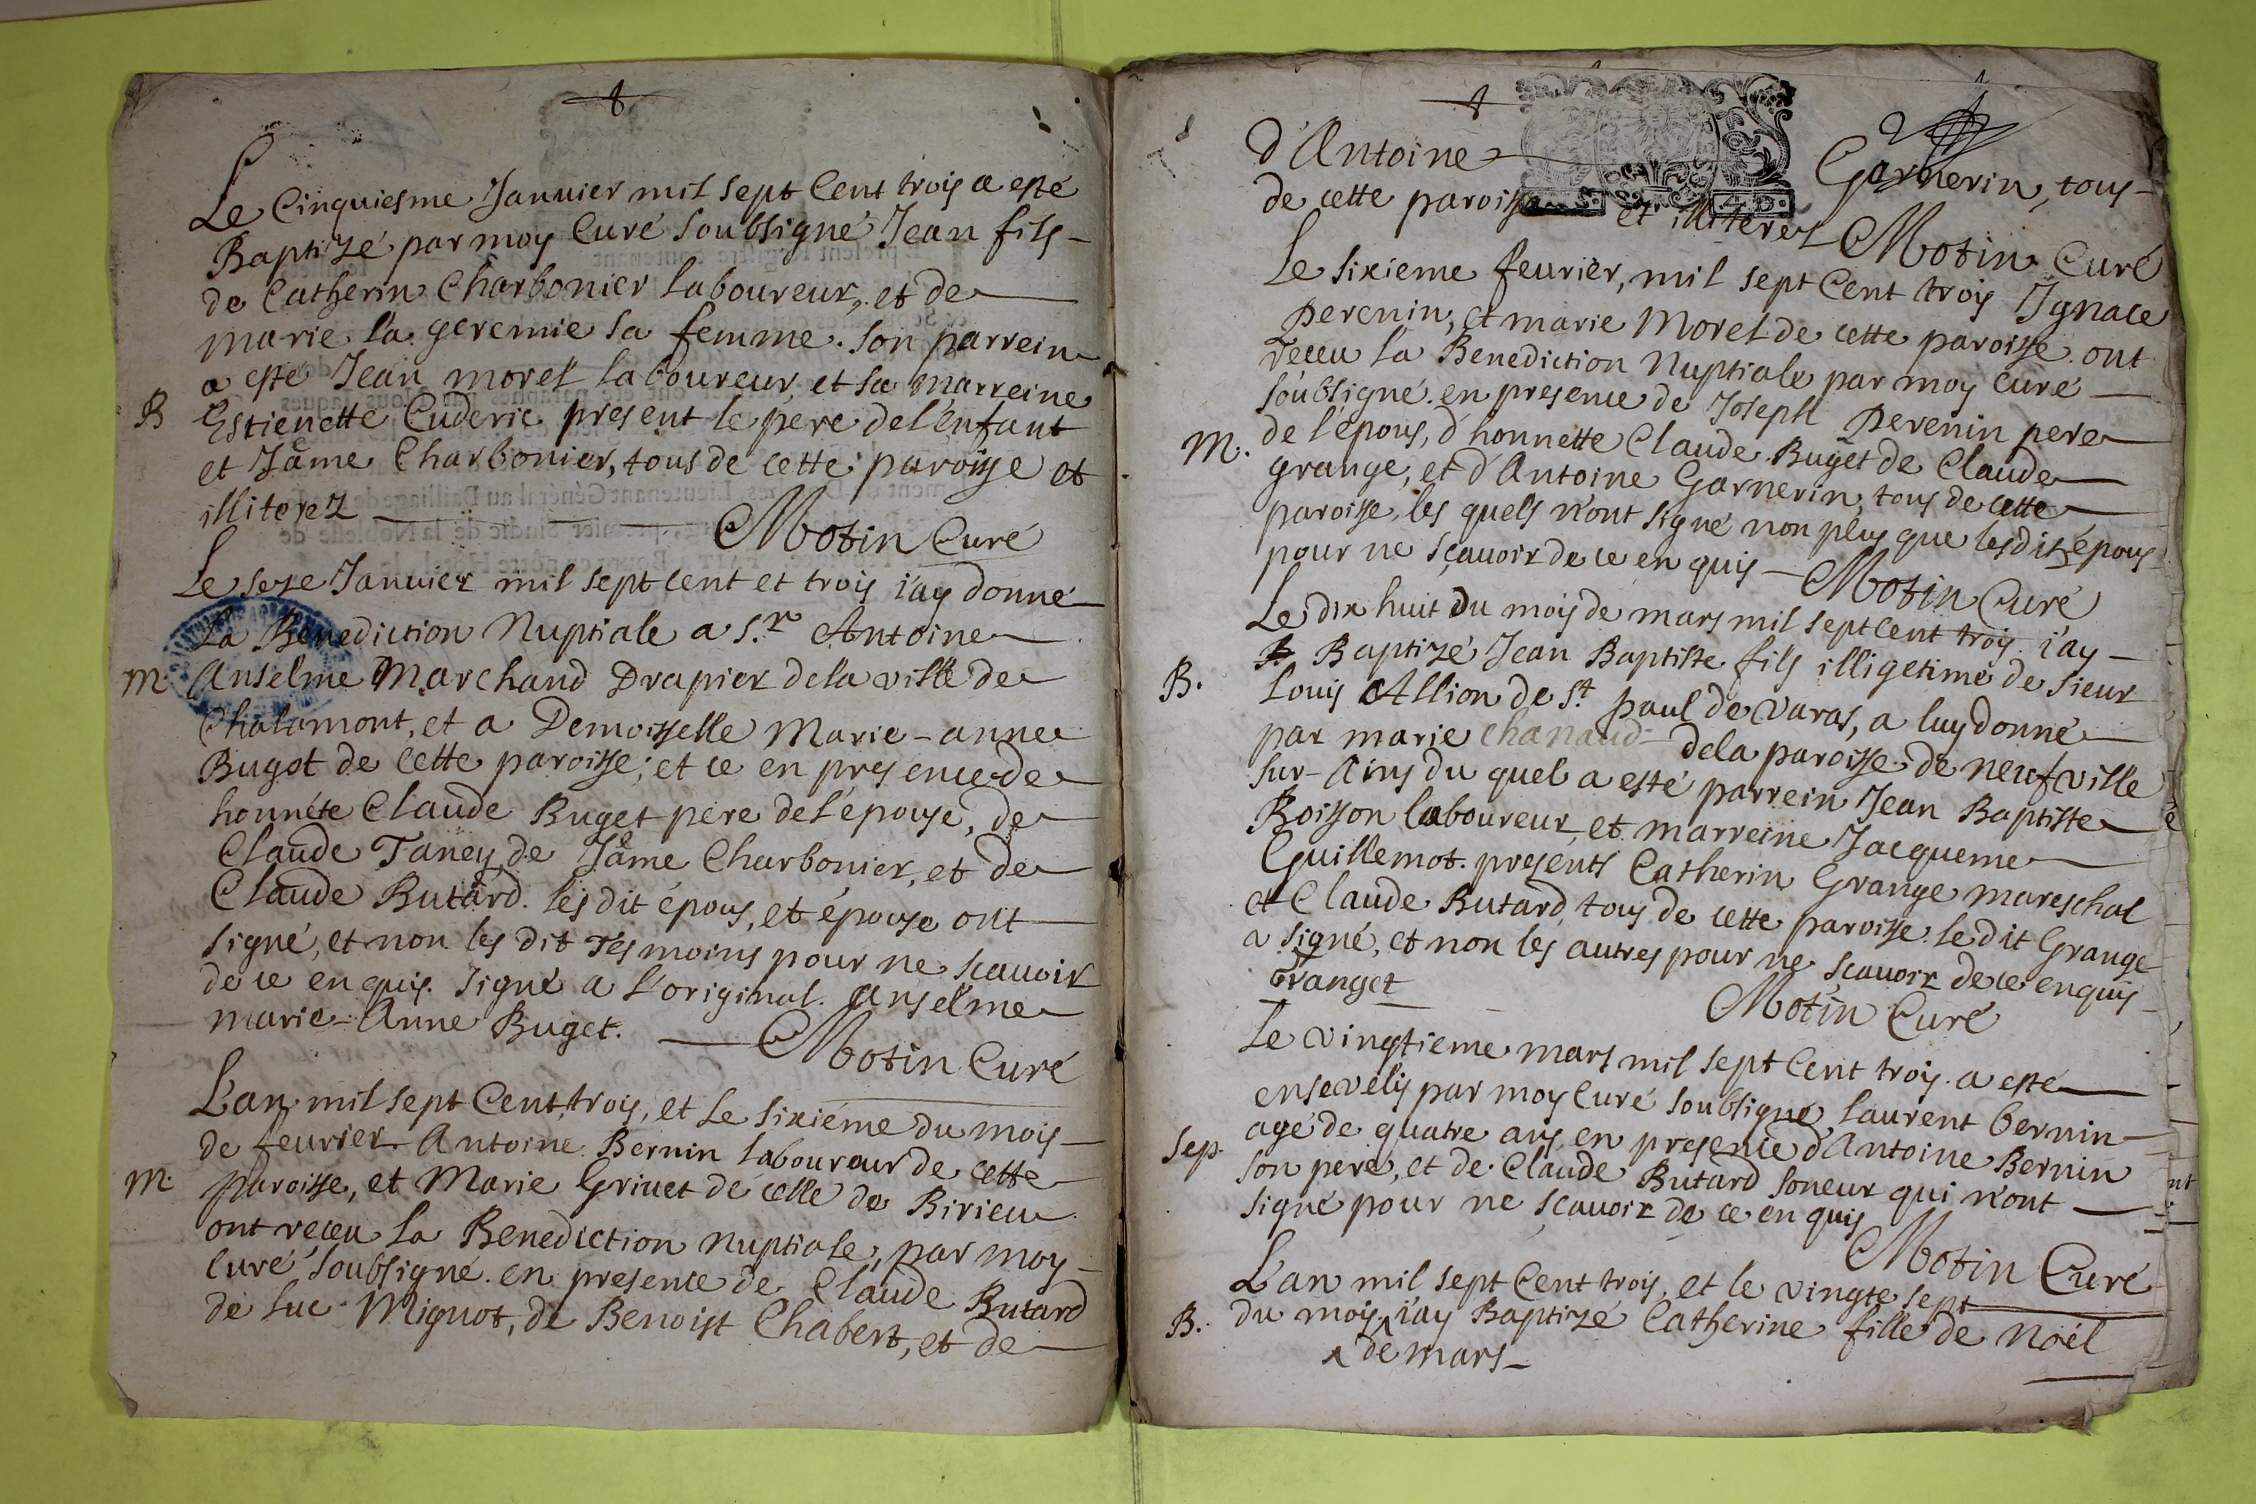 Le Cinquiesme Januier mil sept Cent trois a esté
Baptizé par moy Curé soubsigné Jean fils
de Catherin Charbonier laboureur, et de
marie la geremie sa femme. son parrein
a esté Jean morel laboureur, et sa marreine
B Estienette Cuderie present le pere de l'enfant
et Jâme Charbonier, tous de cette paroisse et
illiterez Motin Curé
Le seze Januier mil sept cent et trois i'ay donné
La Benediction Nuptiale a S.r Antoine
M. Anselme Marchand Drapier de la ville de
Chalamont, et a Demoisselle Marie-anne
Buget de cette paroisse; et ce en presence de
honnéte Claude Buget pere de l'épouse, de
Claude Taney, de Jâme Charbonier, et de
Claude Butard. les dit épous, et épouse ont
signé, et non les dit Tesmoins pour ne scauoir
de ce enquis. signé a l'original. Anselme
marie-Anne Buget. Motin Curé
L'an mil sept Cent trois, et Le sixiéme du mois
de feurier Antoine Bernin laboureur de cette
M. paroisse, et Marie Griuet de celle de Birieu
ont receu la Benediction nuptiale, par moy
curé soubsigné. en presence de Claude Butard
de Luc Mignot, de Benoist Chabert, et de
d'Antoine Garnerin, tous
de cette paroisse et illiterez Motin Curé
Le sixieme feurier, mil sept Cent trois Ignace
Perenin, et marie Morel de cette paroisse ont
receu la Benediction Nuptiale par moy curé
soubsigné. en presence de Joseph Perenin pere
M. de l'épous, d'honnette Claude Buget de Claude
grange, et d'Antoine Garnerin, tous de cette
paroisse, les quels n'ont signé non plus que lesdit épous
pour ne sçauoir de ce enquis Motin Curé
Le dix huit Du mois de mars mil sept cent trois i'ay
Baptizé Jean Baptiste fils illigetime de sieur
B. Louis Allion de St. paul de varas, a luy donné
par marie chanaud de la paroisse de neufville
sur-Ains du quel a esté parrein Jean Baptiste
Boisson laboureur et marreine Jacqueme
Guillemot. presents Catherin Grange mareschal
et Claude Butard, tous de cette paroisse. le dit Grange
a signé, et non les autres pour ne sçauoir de ce enquis
Granget Motin Curé
Le vingtieme mars mil sept Cent trois. a esté
enseuelis par moy curé soubsigné, laurent bernin
agé de quatre ans, en presence d'Antoine Bernin
Sep. son pere, et de Claude Butard soneur qui n'ont
signé pour ne sçauoir de ce enquis
Motin Curé
L'an mil sept Cent trois, et le vingte sept
B. du mois i'ay Baptizé Catherine fille de Noël
de mars